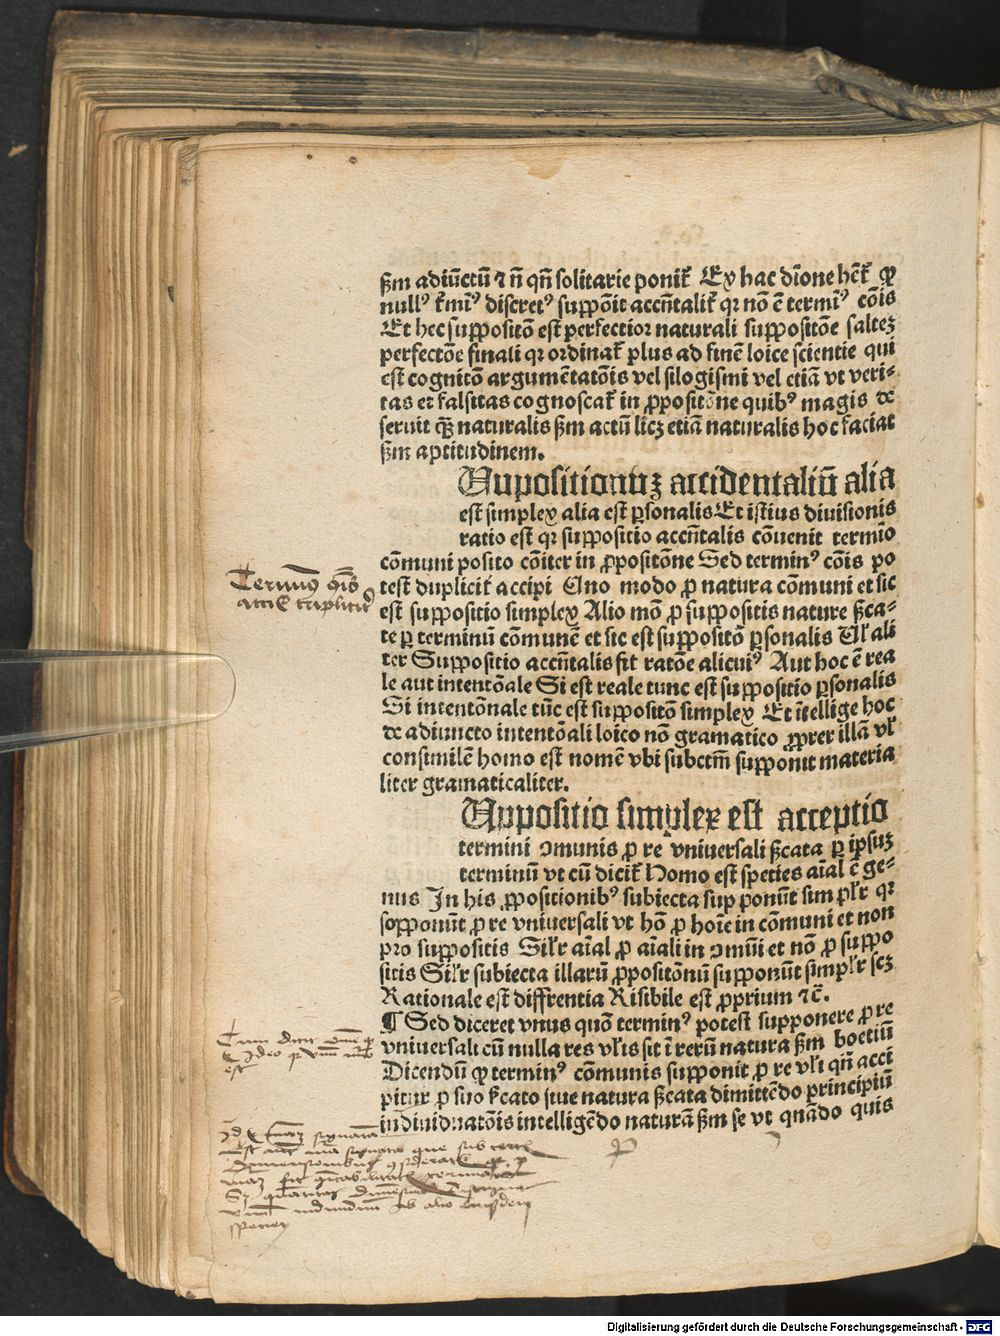 ẞm adiūctū ⁊ ñ qñ solitarie ponit᷑ Ex hac dīone hēt᷑ ꝙ
null⁹ t᷑mī⁹ discret⁹ suppōit accñtalit᷑ qꝛ nō ē termī⁹ cōis
Et hec suppositō est perfectior naturali suppositōe saltez
perfectōe finali qꝛ ordinat᷑ plus ad finē loice scientie qui
est cognitō argumētatōis vel silogismi vel etiā vt veri⸗
tas et falsitas cognoscat᷑ in ꝓpositōne quib⁹ magis de
seruit qꝫ naturalis ẞm actū licꝫ etiā naturalis hoc faciat
ẞm aptitudinem.
Uppositionuꝫ accidentaliū alia
est simplex alia est ꝑsonalis Et istius diuisionis
ratio est qꝛ suppositio accñtalis cōuenit termīo
cōmuni posito cōiter in ꝓpositōne Sed termin⁹ cōis po
test duplicit᷑ accipi Uno modo ꝓ natura cōmuni et sic
est suppositio simplex Alio mō ꝓ suppositis nature ẞca⸗
te ꝑ terminū cōmunē et sic est suppositō ꝑsonalis Ul᷑ ali
ter Suppositio accñtalis fit ratōe alicui⁹ Aut hoc ē rea
le aut intentōale Si est reale tunc est suppositio ꝑsonalis
Si intentōnale tūc est suppositō simplex Et ītellige hoc
de adiuncto intentōali loico nō gramatico ꝓpter illā vl᷑
consimilē homo est nomē vbi subctm̄ supponit materia
liter gramaticaliter.
Uppositio simplex est acceptio
termini ↄmunis ꝓ re vniuersali ẞcata ꝑ ipsuꝫ
terminū vt cū dicit᷑ Homo est species aīal ē ge⸗
nus In his ꝓpositionib⁹ subiecta supponūt simpl᷑r qꝛ
sopponūt ꝓ re vniuersali vt hō ꝓ hoīe in cōmuni et non
pro suppositis Sil᷑r aīal ꝓ aīali in ↄmūi et nō ꝓ suppo
sitis Sil᷑r subiecta illarū ꝓpositōnū supponūt simpl᷑r scꝫ
Rationale est diffrentia Risibile est ꝓprium ⁊c̄.
¶ Sed diceret vnus quō termin⁹ potest supponere ꝓ re
vniuersali cū nulla res vl᷑is sit ī rerū natura ẞm boetiū
Dicendū ꝙ termin⁹ cōmunis supponit ꝓ re vl᷑i qñ acci
pitur ꝓ suo ẞcato siue natura ẞcata dimittēdo principiū
indiuiduatōis intelligēdo naturā ẞm se vt quādo quis
Terminus cōis
Digitalisierung gefördert durch die Deutsche Forschungsgemeinschaft - DFG